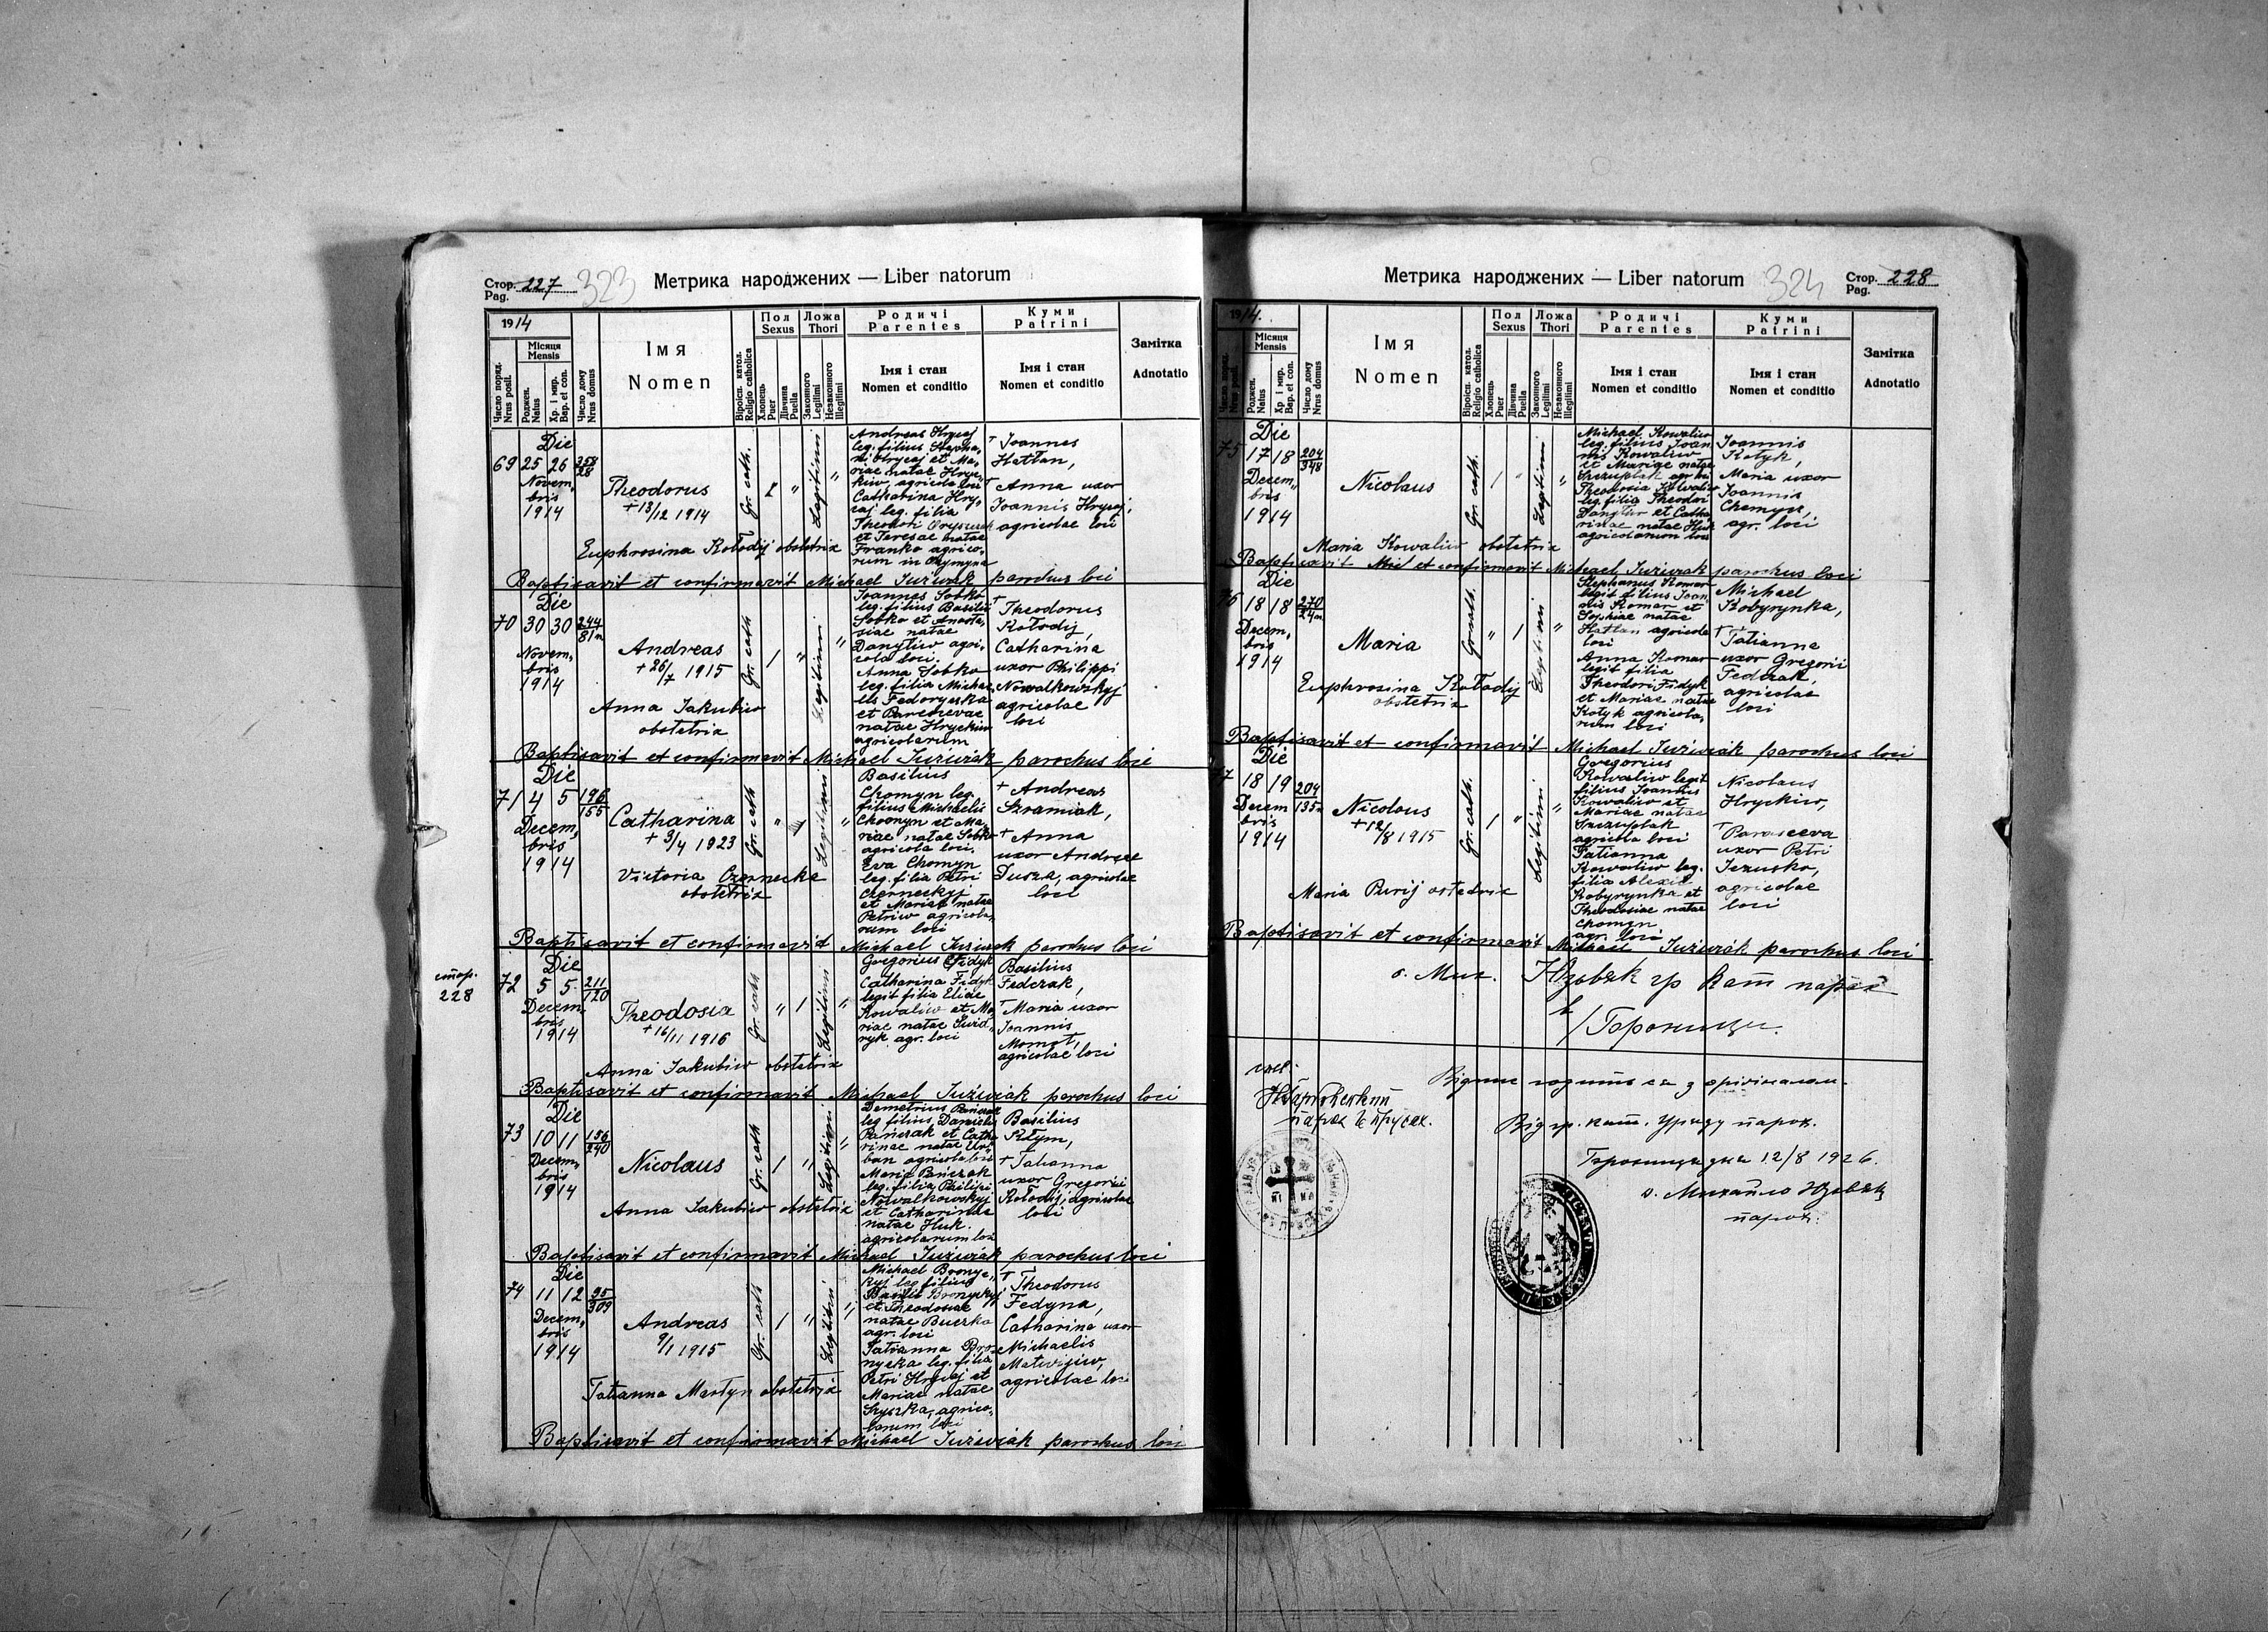 Стор. 227
Pag.
323
Метрика народжених — Liber natorum
1914
Число поряд.
Nrus posit.
Місяця
Mensis
Роджен.
Natus
Хр. і мир.
Bap. et con.
Число дому
Nrus domus
Імя
Nomen
Віроісп. катол.
Religio catholica
Пол
Sexus
Хлопець
Puer
Дівчина
Puella
Ложа
Thori
Законного
Legitimi
Незаконного
Illegitimi
Родичі
Parentes
Імя і стан
Nomen et conditio
Куми
Patrini
Імя і стан
Nomen et conditio
Замітка
Adnotatio
Die
69 25 26 258/28
Novem,
bris
1914
Theodorus
+ 13/12 1914
Euphrosina Kołodij obstetrix
Gr. cath.
Legitimi
Andreas Hrycaj
leg. filius Stepha,
ni Hrycaj et Ma,
riae natae Hryc,
kiw, agricola loci
Catharina Hry,
caj leg. filia
Theodori
et Teresae natae
Franko agrico,
rum in
+ Joannes
Hatlan,
+ Anna uxor
Joannis Hrycaj,
agricolae loci
Baptisavit et confirmavit Michael Juźwiak parochus loci
Die
70 30 30 244/81
Novem,
bris
1914
Andreas
+ 26/7 1915
Anna Jakubiw
obstetrix
Gr. cath
Legitimi
Joannes Sobko
leg. filius Basilii
Sobko et Anasta,
siae natae
Danyliw agri,
cola loci.
Anna Sobko
leg. filia Michae,
lis Fedoryszka
et Parascevae
natae Hryckiw
agricolarum
+ Theodorus
Kołodij,
Catharina
uxor Philippi
Nowalkowskyj
agricolae
loci
Baptisavit et confirmavit Michael Juźwiak parochus loci
Die
71 4 5 196/155
Decem,
bris
1914
Catharina
+ 3/4 1923
Victoria Czernecka
obstetrix
Gr. cath
Legitimi
Basilius
Chomyn leg.
filius Michaelis
Chomyn et Ma,
riae natae Sobko
agricola loci.
Eva Chomyn
leg. filia Petri
Czerneckyj
et Mariae natae
Petriw agricola,
rum loci
+ Andreas
Szramiak,
+ Anna
uxor Andreae
Dusza, agricolae
loci
Baptisavit et confirmavit Michael Juźwiak parochus loci
стор.
228
Die
72 5 5 211/120
Decem,
bris
1914
Theodosia
+ 16/11 1916
Anna Jakubiw obstetrix
Gr. cath
Legitimi
Gregorius Fidyk
Catharina Fidyk
legit filia Eliae
Kowaliw et Ma
riae natae Swid,
ryk agr. loci
Basilius
Fedczak,
+ Maria uxor
Joannis
Momot,
agricolae loci
Baptisavit et confirmavit Michael Juźwiak parochus loci
Die
73 10 11 156/240
Decem,
bris
1914
Nicolaus
Anna Jakubiw obstetrix
Gr. cath
Legitimi
Demetrius Pańczak
leg. filius Danielis
Pańczak et Catha
rinae natae Ur,
ban agricola loci
Maria Pańczak
leg. filia Philippi
Nowalkowskyj
et Catharinae
natae Huk.
agricolarum loci
Basilius
Kłym,
+ Tatianna
uxor Gregorii
Kołodij, agricolae
loci
Baptisavit et confirmavit Michael Juźwiak parochus loci
Die
74 11 12 95/309
Decem,
bris
1914
Andreas
9/1 1915
Tatianna Martyn obstetrix
Gr. cath
Legitimi
Michael Bronyc,
kyj leg. filius
Basilii Bronyckyj
et Theodosiae
natae Buczko
agr. loci
Tatianna Bro
nycka leg. filia
Petri Hrycaj et
Mariae natae
Szyszka, agrico,
larum loci
+ Theodorus
Fedyna,
Catharina uxor
Michaelis
Matwijiw,
agricolae loci
Baptisavit et confirmavit Michael Juźwiak parochus loci
Метрика народжених — Liber natorum
324
Стор. 228
Pag.
1914.
Число поряд.
Nrus posit.
Місяця
Mensis
Роджен.
Natus
Хр. і мир.
Bap. et con.
Число дому
Nrus domus
Імя
Nomen
Віроісп. катол.
Religio catholica
Пол
Sexus
Хлопець
Puer
Дівчина
Puella
Ложа
Thori
Законного
Legitimi
Незаконного
Illegitimi
Родичі
Parentes
Імя і стан
Nomen et conditio
Куми
Patrini
Імя і стан
Nomen et conditio
Замітка
Adnotatio
Die
75 17 18 204/348
Decem,
bris
1914
Nicolaus
Maria Kowaliw obstetrix
Gr. cath.
Legitimi
Michael Kowaliw
leg. filius Joan
nis Kowaliw
et Mariae natae
Szczuplak agr. loci
Theodosia Kowaliw
leg. filia Theodori
Danyliw et Catha
rinae natae Huk
agricolarum loci
Joannis
Kotyk,
Maria uxor
Joannis
Chemycz,
agr. loci
Baptisavit et confirmavit Michael Juźwiak parochus loci
Die
76 18 18 270/24
Decem,
bris
1914
Maria
Euphrosina Kołodij
obstetrix
Gr. cath.
Legitimi
Stephanus Komar
legit filius Joan,
nis Komar et
Sophiae natae
Hatlan agricola
loci
Anna Komar
legit filia
Theodori Fidyk
et Mariae natae
Kotyk agricola,
rum loci
Michael
Kobyrynka,
+ Tatianna
uxor Gregorii
Fedczak,
agricolae
loci
Baptisavit et confirmavit Michael Juźwiak parochus loci
Die
77 18 19 204/135
Decem
bris
1914
Nicolaus
+ 12/8 1915
Maria Purij
Gr. cath.
Legitimi
Gregorius
Kowaliw legit
filius Joannis
Kowaliw et
Mariae natae
Szczuplak
agricola loci
Tatianna
Kowaliw leg.
filia Alexii
Kobyrynka et
Theodosiae natae
Chomyn
agr. loci
Nicolaus
Hryckiw,
+ Parasceva
uxor Petri
Jezusko,
agricolae
loci
Baptisavit et confirmavit Michael Juźwiak parochus loci
о. Мих. Юзвяк гр кат парох
в
Горожанци.
парох
Відпис годить ся з орігіналом.
Від гр. кат. Уряду парох.
Горожанца дня 12/8 1926.
о. Михайло Юзвяк
парох.